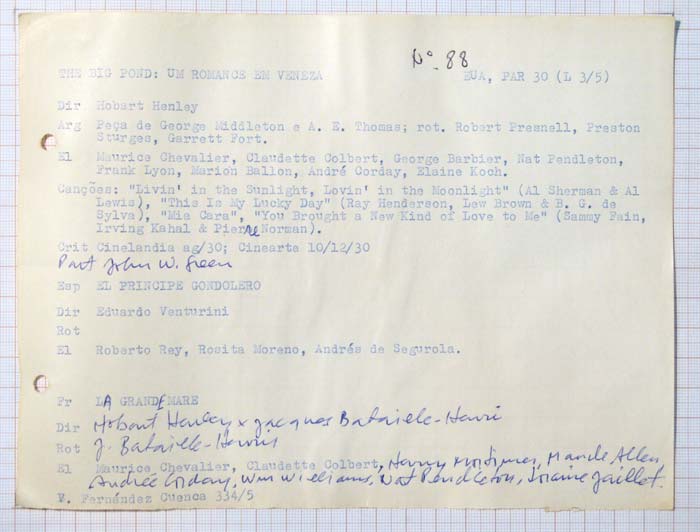 Nº 88
THE BIG POND: UM ROMANCE EM VENEZA EUA, PAR 30 (L 3/5)
Dir Hobart Henley
Arg Peça de George Middleton e A. E. Thomas; rot. Robert Presnell, Preston
Sturges, Garrett Fort.
El Maurice Chevalier, Claudette Colbert, George Barbier, Nat Pendleton,
Frank Lyon, Marion Ballon, André Corday, Elaine Koch.
Canções: "Livin' in the Sunlight, Lovin' in the Moonlight" (Al Sherman & Al
Lewis), "This Is My Lucky Day" (Ray Henderson, Lew Brown & B. G. de
Sylva), "Mia Cara", "You Brought a New Kind of Love to Me" (Sammy Fain,
Irving Kahal & Pierre Norman).
Crit Cinelandia ag/30; Cinearte 10/12/30
Part John W. Green
Esp EL PRINCIPE GONDOLERO
Dir Eduardo Venturini
Rot
El Roberto Rey, Rosita Moreno, Andrés de Segurola.
Fr LA GRANDE MARE
Dir Hobart Henley x Jacques Bataille-Henri
Rot J. Bataille-Henri
El Maurice Chevalier, Claudette Colbert, Henry Mortimer, Maude Allen
Andrée Corday, Wm Williams, Nat Pendleton, Loraine Jaillet.
V. Fernández Cuenca 334/5